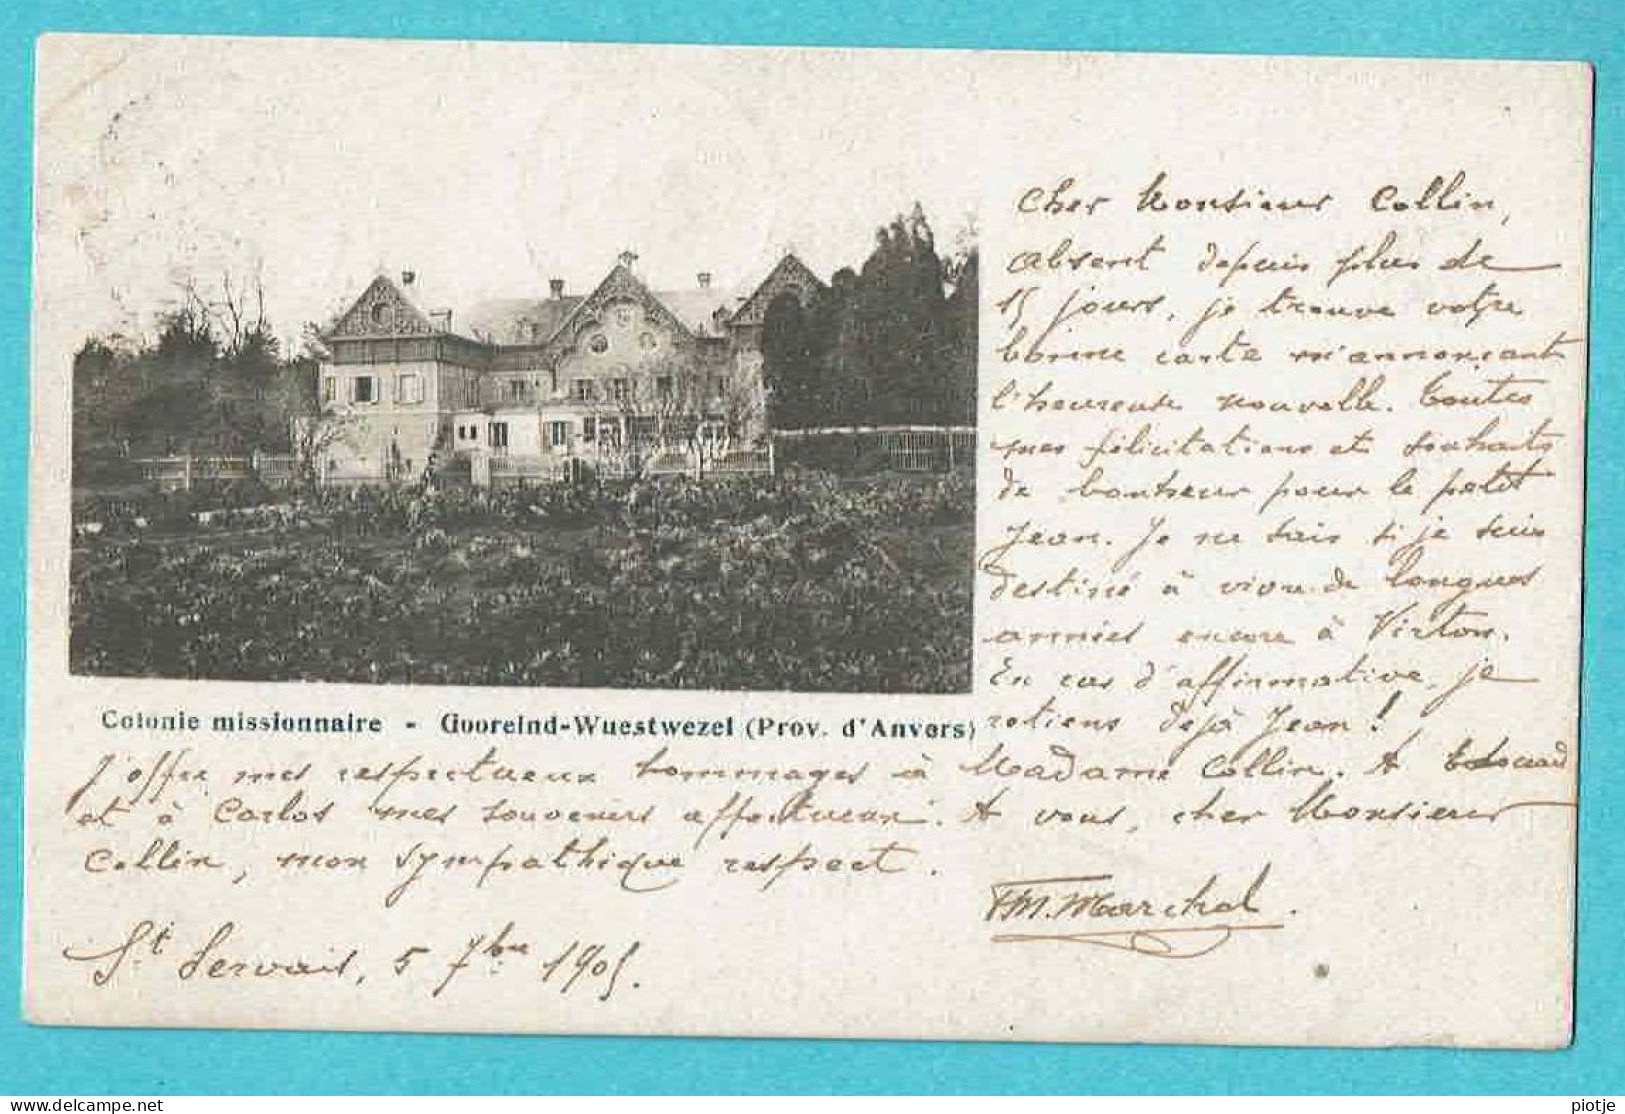 Cher Monsieur Collin,
absent depuis plus de
15 jours, je trouve votre
bonne carte m'annonçant
l'heureuse nouvelle. Toutes
mes félicitations et souhaits
de bonheur pour le petit
Jean. Je ne sais si je suis
destiné à vivre de longues
années encore à Virton.
En cas d'affirmative, je
retiens dejà Jean !
Colonie missionnaire - Gooreind-Wuestwezel (Prov. d'Anvers)
J'offre mes respectueux hommages à Madame Collin. A Edouard
et à Carlos mes souvenirs affectueux. A vous, cher Monsieur
Collin, mon sympathique respect.
Marchal.
St Servais, 5 7bre 1905.
delcampe.net
piotje